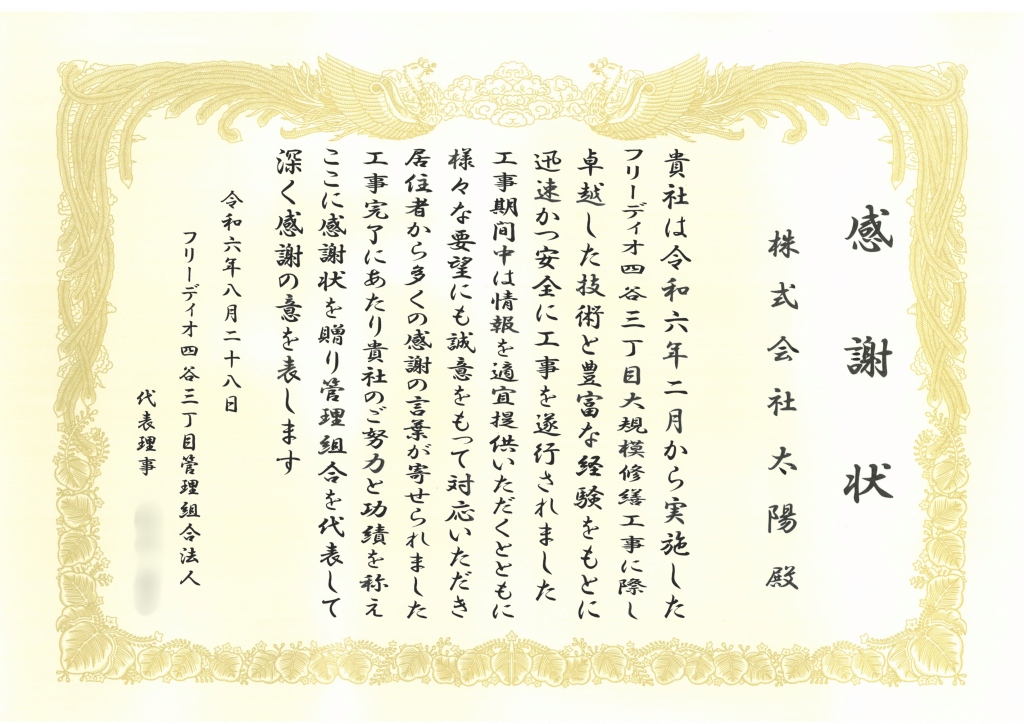 感謝状
株式会社太陽殿
貴社は令和六年二月から実施した
フリーディオ四谷三丁目大規模修繕工事に際し
卓越した技術と豊富な経験をもとに
迅速かつ安全に工事を遂行されました
工事期間中は情報を適宜提供いただくとともに
様々な要望にも誠意をもって対応いただき
居住者から多くの感謝の言葉が寄せられました
工事完了にあたり貴社のご努力と功績を称え
ここに感謝状を贈り管理組合を代表して
深く感謝の意を表します
令和六年八月二十八日
フリーディオ四谷三丁目管理組合法人
代表理事